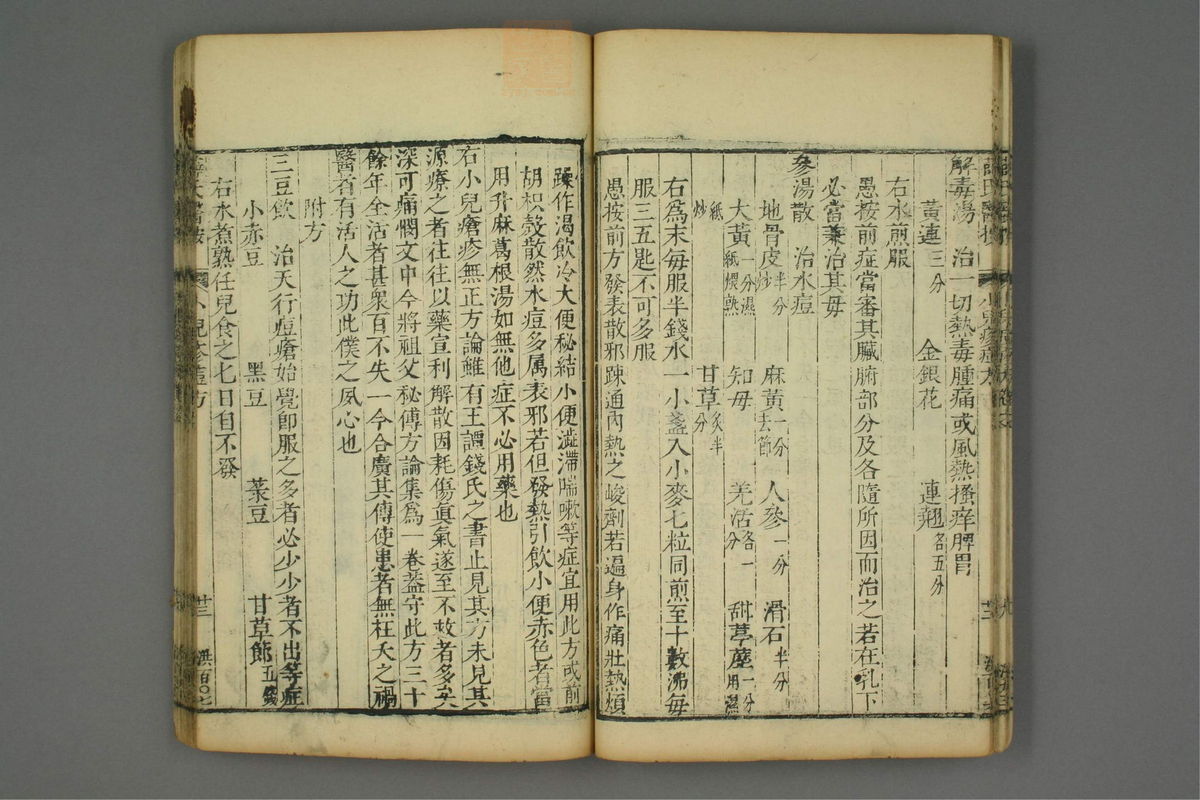 解毒湯　治一切熱毒腫痛或風熱搔痒脾胃
黃連三分　金銀花　連翹各五分
右水煎服
愚按前症當審其臟腑部分及各隨所因而治之若在乳下
必當兼治其母
參湯散　治水痘
地骨皮炒半分　麻黃去節一分　人參一分　滑石半分
大黃一分濕紙煨熟　知母　羌活各一分　甜葶藶一分用濕
紙炒　甘草炙半分
右爲末每服半錢水一小盞入小麥七粒同煎至十數沸每
服三五匙不可多服
愚按前方發表散邪踈通內熱之峻劑若遍身作痛壯熱煩
躁作渴飲冷大便秘結小便澁滯喘嗽等症宜用此方或前
胡枳殼散然水痘多属表邪若但發熱引飲小便赤色者當
用升麻葛根湯如無他症不必用藥也
右小兒瘡疹無正方論雖有王謂錢氏之書止見其方未見其
源療之者往往以藥宣利解散因耗傷眞氣遂至不救者多矣
深可痛憫文中今將祖父秘傳方論集爲一卷葢守此方三十
餘年全活者甚衆百不失一今合廣其傳使患者無枉夭之禍
醫者有活人之功此僕之夙心也
附方
三豆飲　治天行痘瘡始覺卽服之多者必少少者不出等症
小赤豆　黑豆　菉豆　甘草節五錢
右水煮熟任兒食之七日自不發
廿三
洪百〇七